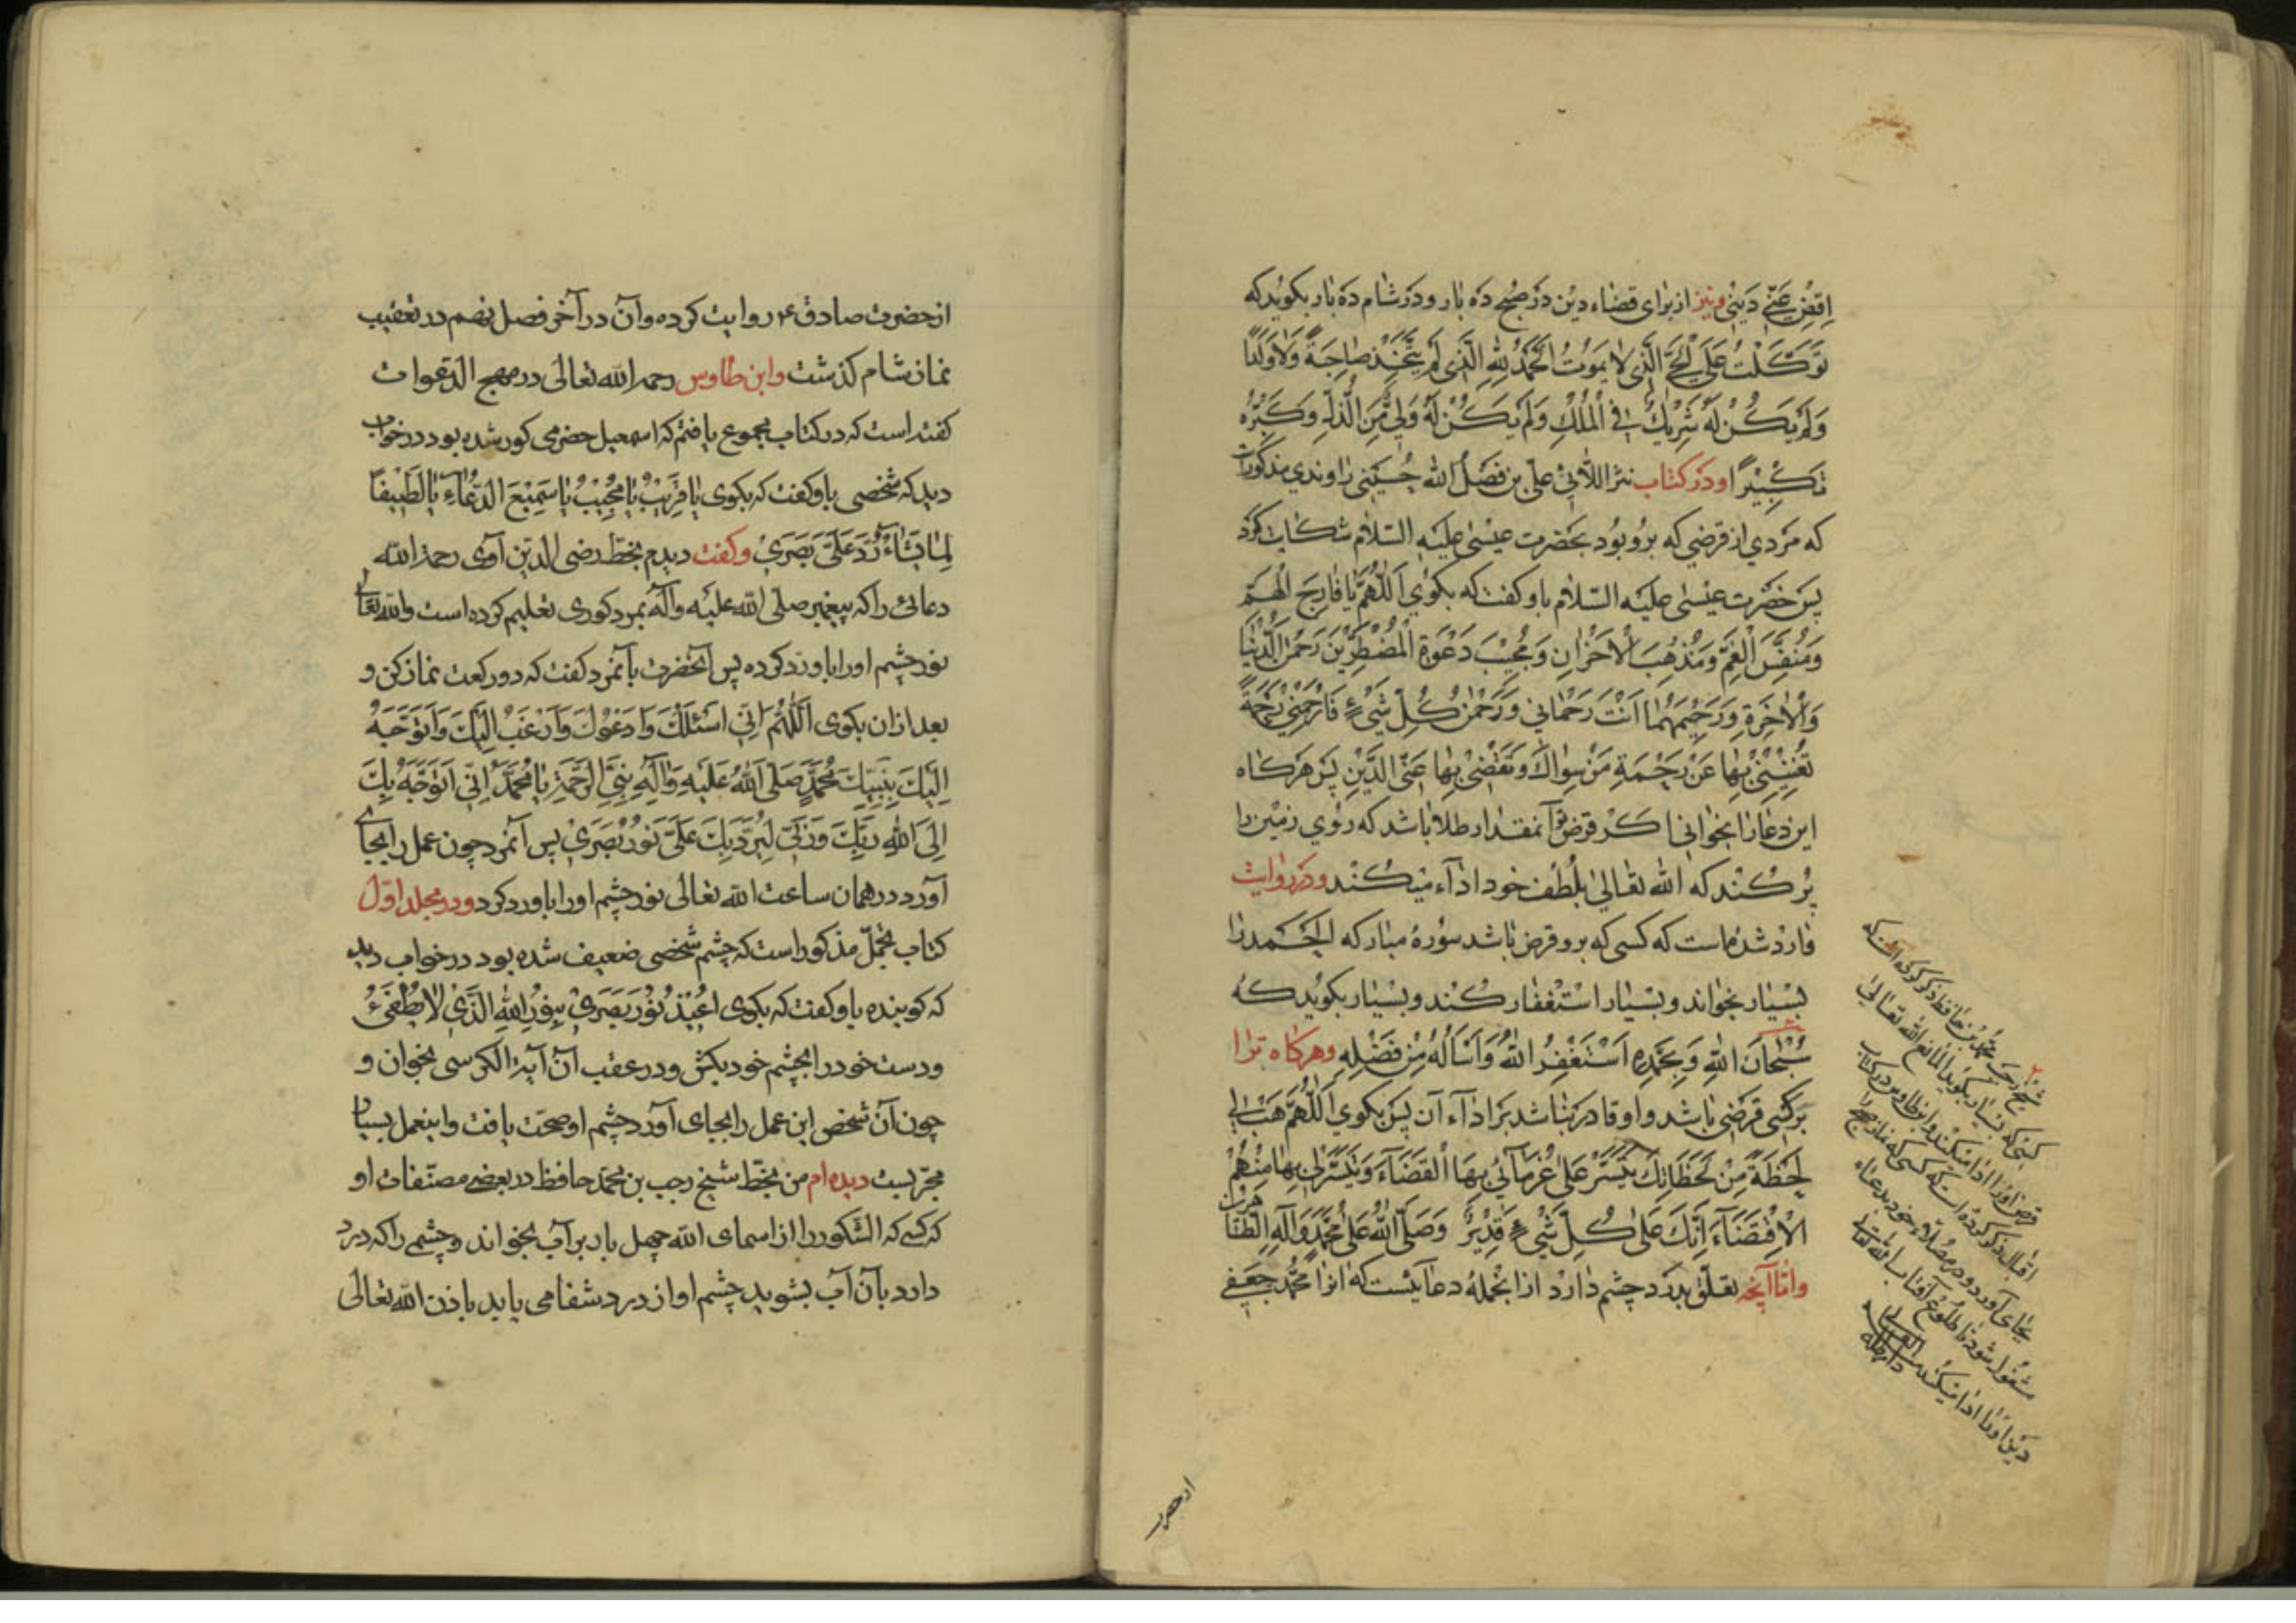 اِقْضِ عَنّي دَيْنی ونیز از برای قضاء دین در صُبح دَه بار و در شام دَه بار بکوید که
تَوَكَّلْتُ عَلَى الْحَيِّ الَّذي لا يَمُوتُ الْحَمْدُ لِلّهِ الَّذي لَمْ يَتَّخِذْ صاحِبَةً وَلا وَلَدًا
وَلَمْ يَكُنْ لَهُ شَريكٌ فِي الْمُلْكِ وَلَمْ يَكُنْ لَهُ وَلِيٌّ مِنَ الذُّلِّ وَكَبِّرْهُ
تَكْبيرًا و در کتاب نثر اللآلئ علی بن فضل الله حُسَینی راوندی مذکورست
که مردی از قرضی که برو بود بحضرت عیسی علیه السلام شکایت کرد
پس حضرت عیسی علیه السلام باو کفت که بکوی اَللّهُمَّ يا فارِجَ الْهَمِّ
وَمُنَفِّسَ الْغَمِّ وَمُذْهِبَ الْاَحْزانِ وَمُجيبَ دَعْوَةِ الْمُضْطَرّينَ رَحْمنَ الدُّنْيا
وَالْاخِرَةِ وَرَحيمَهُما اَنْتَ رَحْماني وَرَحْمنُ كُلِّ شَيْءٍ فَارْحَمْني رَحْمَةً
تُغْنيني بِها عَنْ رَحْمَةِ مَنْ سِواكَ وَتَقْضي بِها عَنّي الدَّيْنَ پس هرکاه
این دعا را بخوانی اکر قرض تو آنمقدار طلا باشد که روی زمین را
پُر کند که الله تعالی بلُطف خود اداء میکند و در روایت
وارد شده است که کسی که برو قرض باشد سورهٔ مبارکه الحمد را
بسیار بخواند و بسیار استغفار کند و بسیار بکوید که
سُبْحانَ اللهِ وَبِحَمْدِهِ اَسْتَغْفِرُ اللهَ وَاَسْأَلُهُ مِنْ فَضْلِهِ وهرکاه ترا
بر کسی قرضی باشد و او قادر نباشد بر اداء آن پس بکوی اَللّهُمَّ هَبْ لي
لَحْظَةً مِنْ لَحَظاتِكَ تُيَسِّرُ عَلى غُرَمائي بِهَا الْقَضاءَ وَتُيَسِّرُ لي بِها مِنْهُمْ
الْاِقْتِضاءَ اِنَّكَ عَلى كُلِّ شَيْءٍ قَديرٌ وَصَلَّى اللهُ عَلى مُحَمَّدٍ وَآلِهِ الطّاهِرينَ
وامّا آنچه تعلّق بدرد چشم دارد از انجمله دعائیست که انرا محمّد جعفی
شیخ رجب بن محمد بن حافظ ذکر کرده است که
کسی که بسیار بکوید المانع الله تعالی
قرض اورا ادا میکند و ابن طاوس در کتاب
اقبال ذکر کرده است که کسی که نماز صبح را
بجای آورد و در مصلاء خود بدعاء
مشغول شود تا طلوع آفتاب الله تعالی
دین اورا ادا میکند
از حضرت
از حضرت صادق ۴ روایت کرده و آن در آخر فصل نهم در تعقیب
نماز شام کذشت وابن طاوس رحمه الله تعالی در مهج الدعوات
کفته است که در کتاب مجموع یافتم که اسمعیل حضرمی کور شده بود در خواب
دید که شخصی باو کفت که بکوی يا قَريبُ يا مُجيبُ يا سَميعَ الدُّعاءِ يا لَطيفًا
لِما يَشاءُ رُدَّ عَلَيَّ بَصَري وکفت دیدم بخطّ رضی الدین آوی رحمه الله
دعائی را که پیغمبر صلّی الله علیه وآله بمرد کوری تعلیم کرده است والله تعالی
نور چشم او را باو رد کرده پس آنحضرت بآنمرد کفت که دو رکعت نماز کن و
بعد از ان بکوی اَللّهُمَّ اِنّي اَسْئَلُكَ وَاَدْعُوكَ وَاَرْغَبُ اِلَيْكَ وَاَتَوَجَّهُ
اِلَيْكَ بِنَبِيِّكَ مُحَمَّدٍ صَلَّى اللهُ عَلَيْهِ وَآلِهِ نَبِيِّ الرَّحْمَةِ يا مُحَمَّدُ اِنّي اَتَوَجَّهُ بِكَ
اِلَى اللهِ رَبِّكَ وَرَبّي لِيَرُدَّ بِكَ عَلَيَّ نُورَ بَصَري پس آنمرد چون عمل را بجای
آورد در همان ساعت الله تعالی نور چشم او را باو رد کرد و در مجلد اوّل
کتاب مجمل مذکور است که چشم شخصی ضعیف شده بود در خواب دید
که کوینده باو کفت که بکوی اُعيذُ نُورَ بَصَري بِنُورِ اللهِ الَّذي لا يُطْفَئُ
و دست خود را بچشم خود بکش و در عقب آن آیة الکرسی بخوان و
چون آن شخص این عمل را بجای آورد چشم او صحّت یافت و اینعمل بسیار
مجرّبست دیده ام من بخطّ شیخ رجب بن محمّد حافظ در بعضی مصنّفات او
که کسی که الشکور را از اسمای الله چهل بار بر آب بخواند و چشمی را که درد
دارد بآن آب بشوید چشم او از درد شفا می یابد باذن الله تعالی